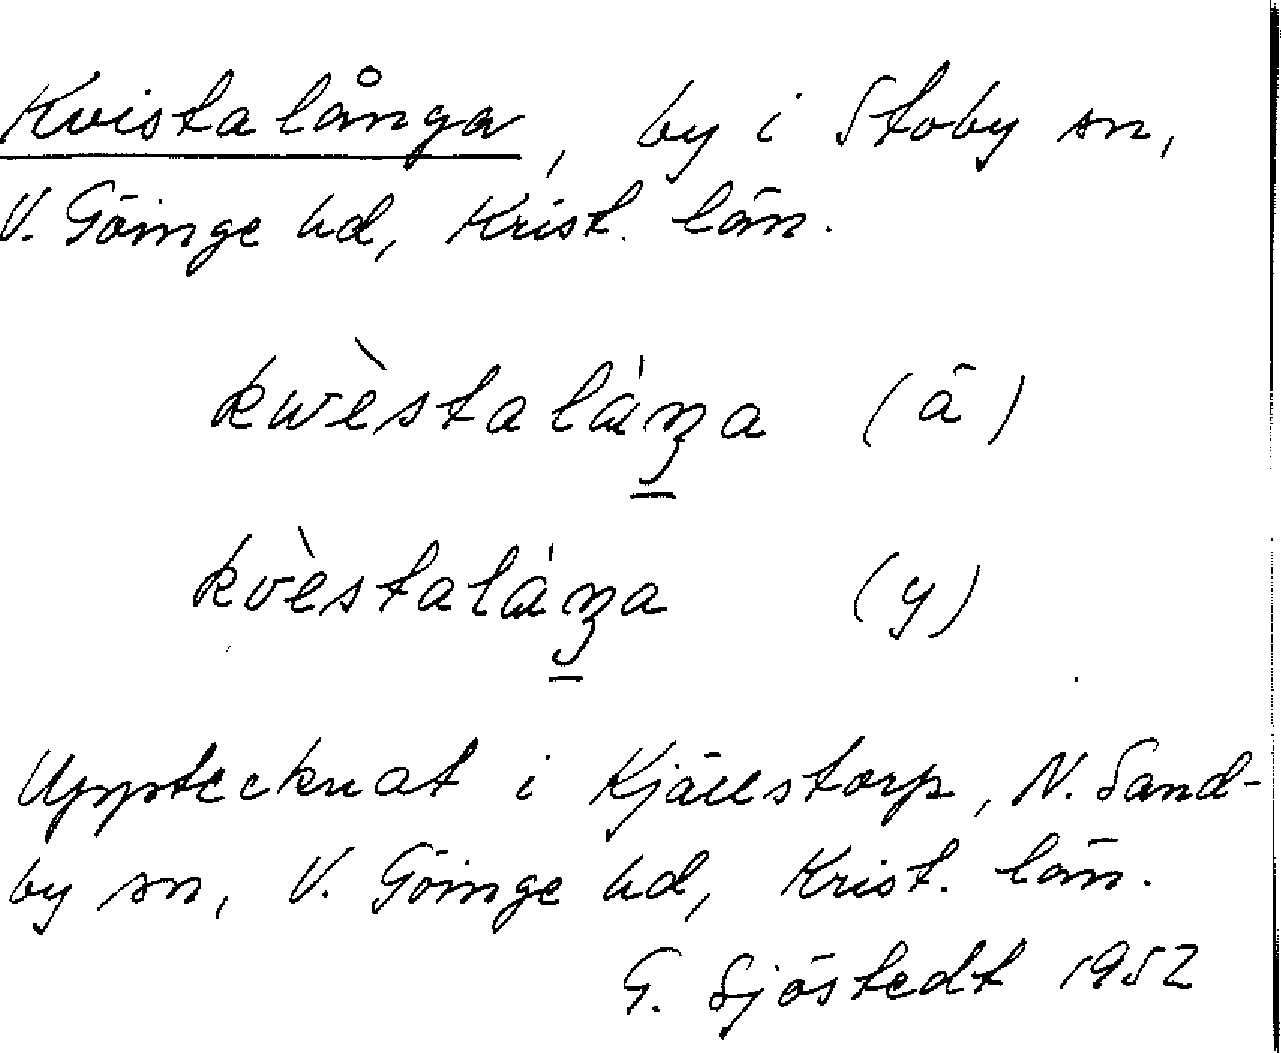 Kvistalånga, by i Stoby sn,
V. Göinge hd, Krist. län.
kwèstaláŋa (ä)
kvèstaláŋa (y)
Upptecknat i Kjällstorp, N. Sand-
by sn, V. Göinge hd, Krist. län.
G. Sjöstedt 1952